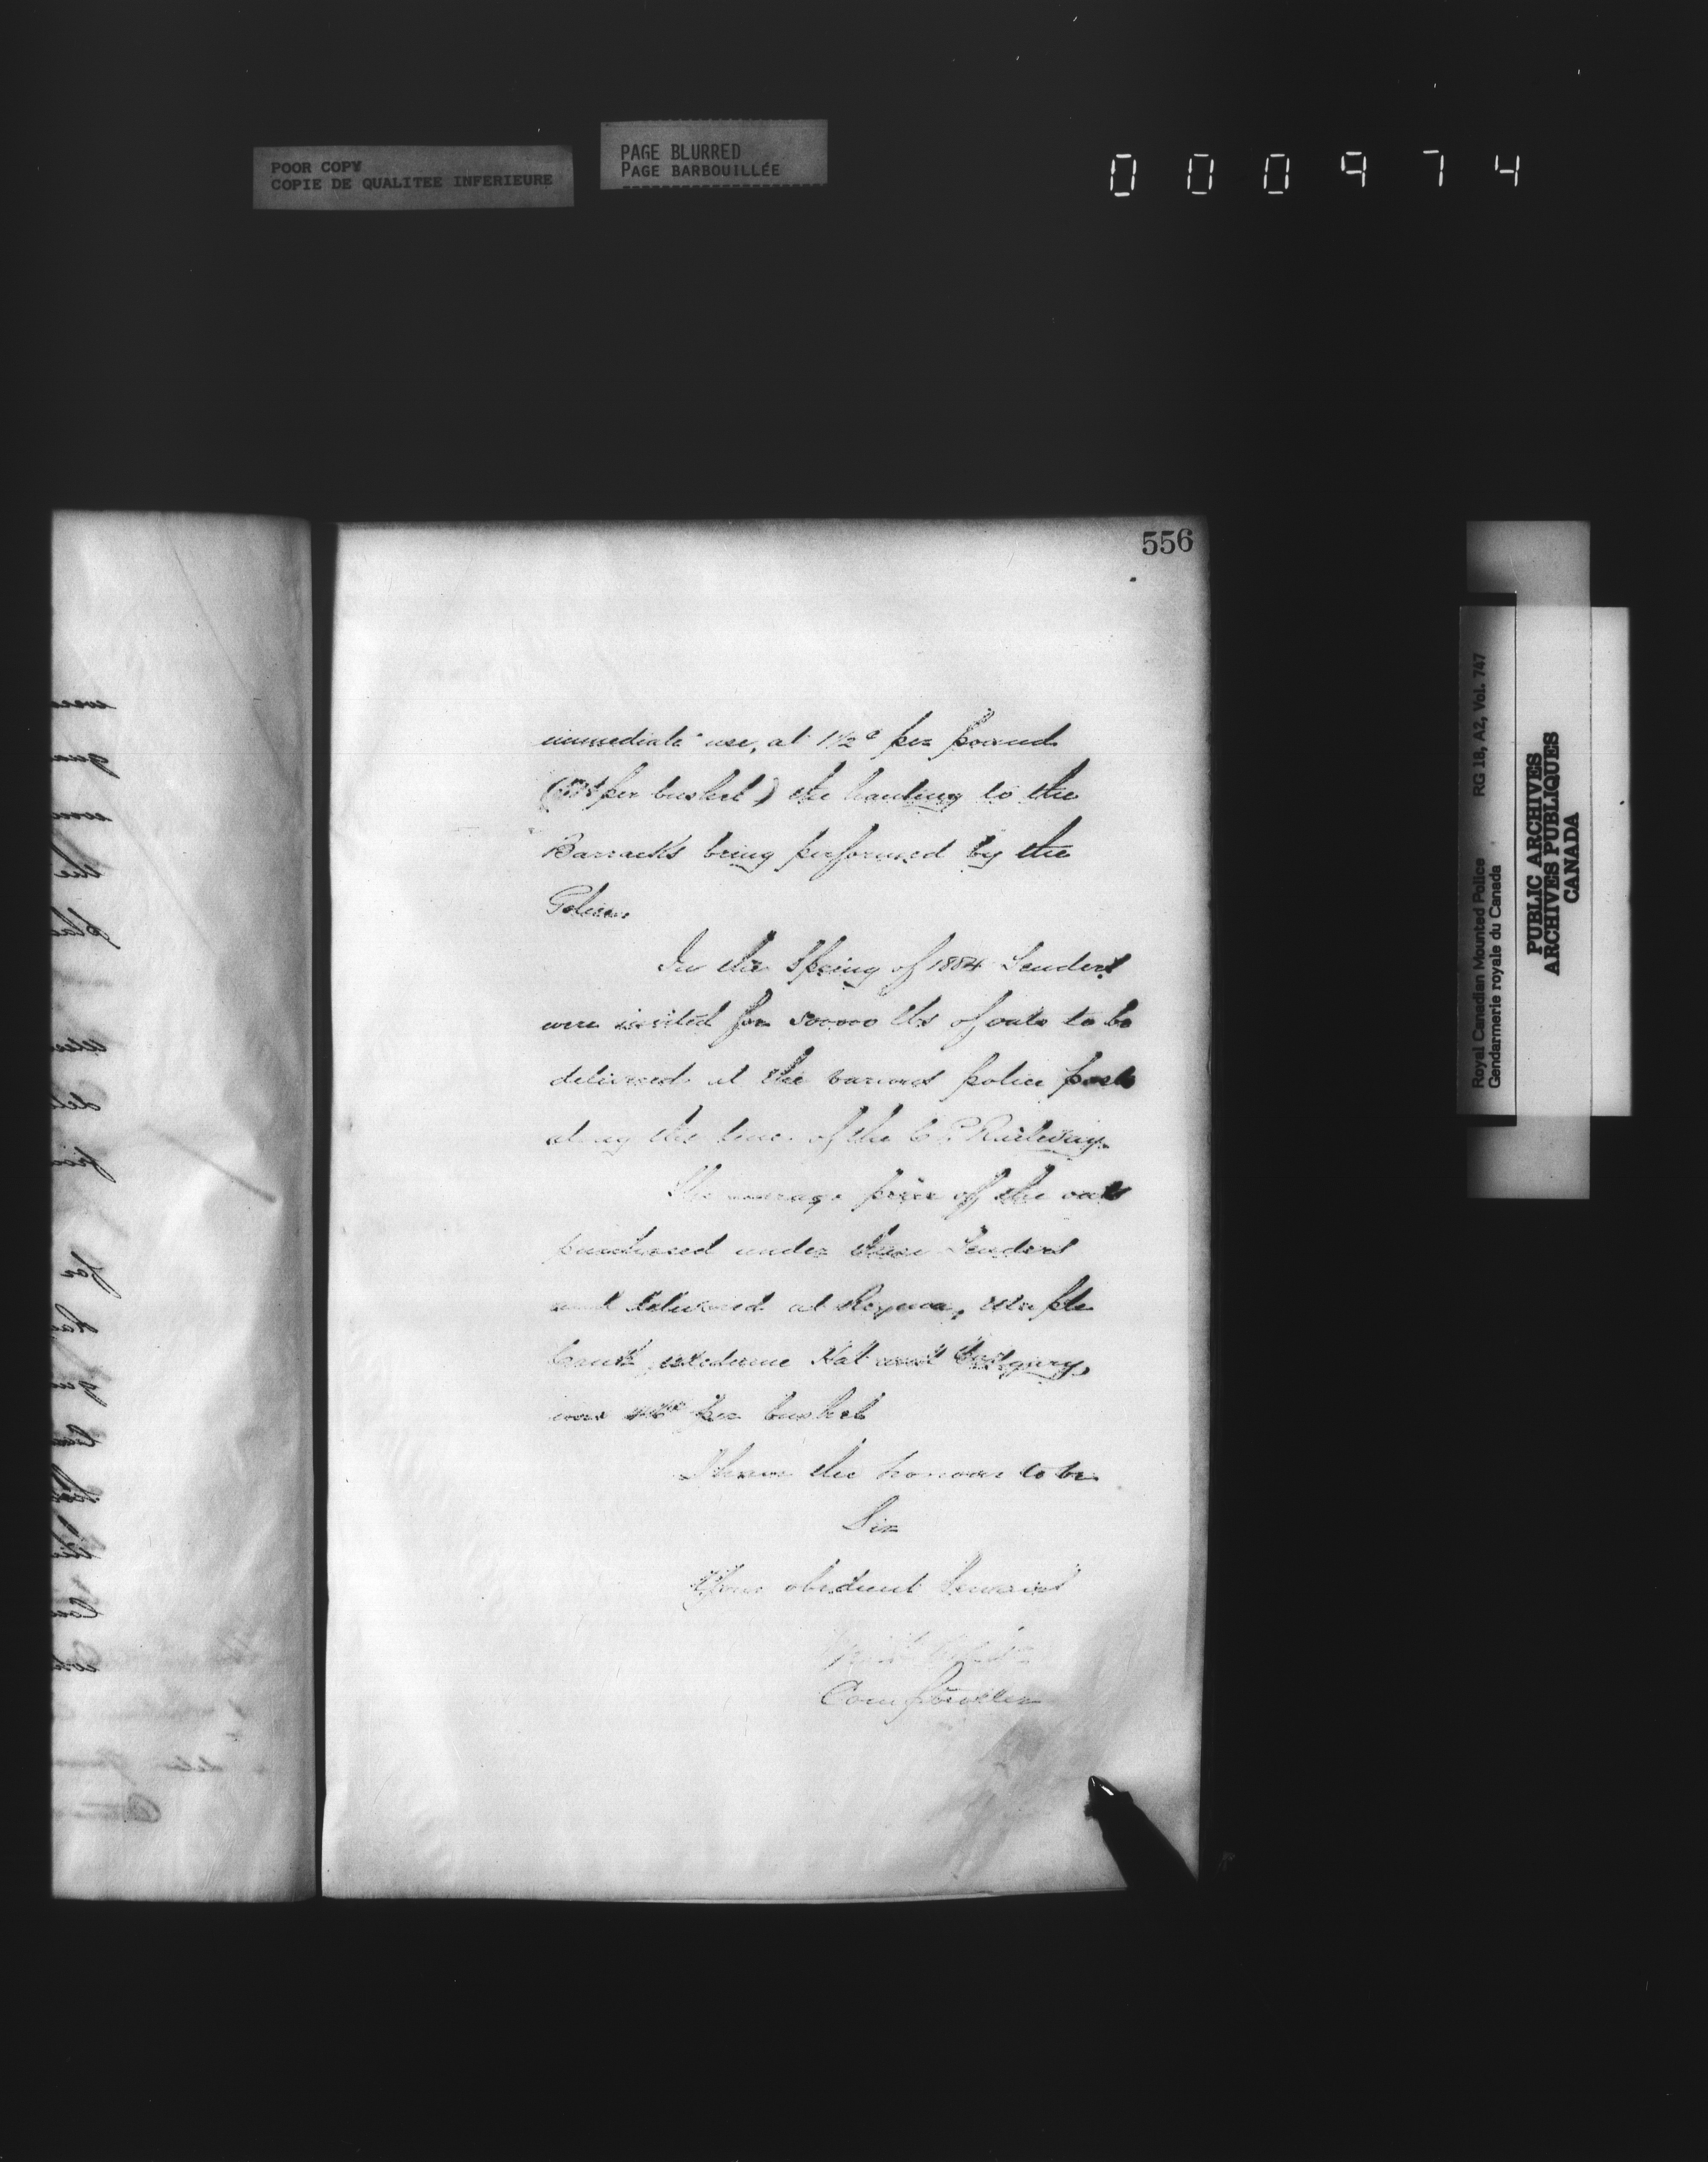 POOR COPY
COPIE DE QUALITEE INFERIEURE
PAGE BLURRED
PAGE BARBOUILLÉE
000974
556
immediate use, at 1½c per pound
per bushel) the hauling to the
Barracks being performed by the
Police.
In the Spring of 1884 Tenders
were invited for 500000 lbs of oats to be
delivered at the various police posts
along the line of the C P Railway.
The average price of the oats
purchased under these Tenders
and delivered at Regina, Maple
Creek, Medicine Hat and Calgary,
was per bushel
I have the honour to be
Sir
Your obedient Servant
Comptroller
Royal Canadian Mounted Police RG 18, A2, Vol. 747
Gendarmerie royale du Canada
PUBLIC ARCHIVES
ARCHIVES PUBLIQUES
CANADA